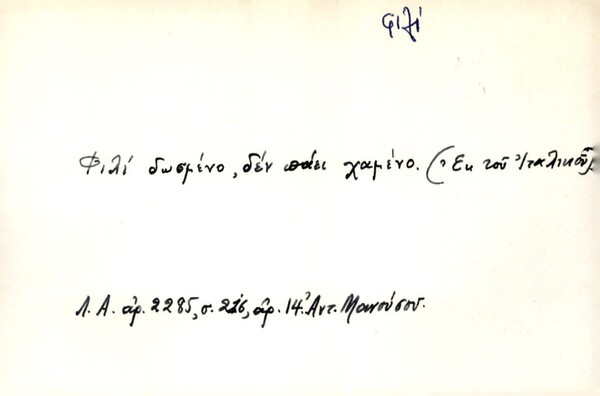 φιλί
Φιλί δωσμένο, δέν πάει χαμένο. (Ἐκ τοῦ Ἰταλικοῦ).
Λ. Α. ἀρ. 2285, σ. 226, ἀρ. 14. Ἀντ. Μανούσου.